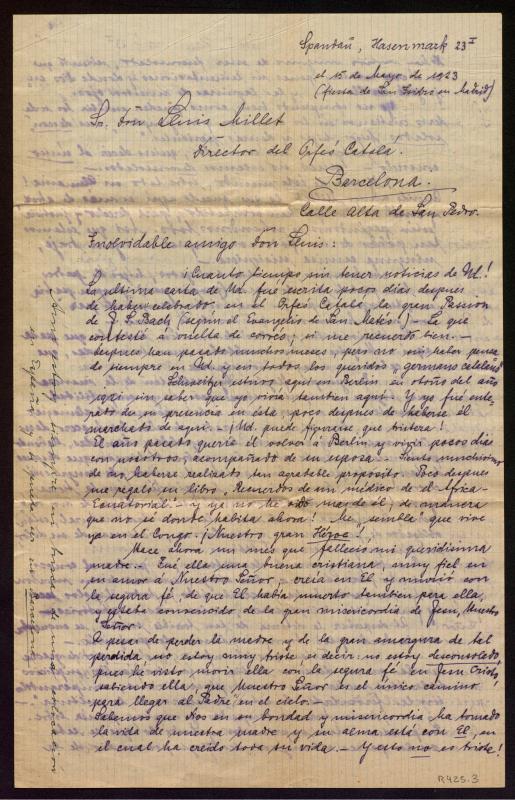 Spandau, Hasenmark 23 I
el 15 de Mayo de 1923
(fiesta de San Isidro en Madrid)
Sr. Don Lluis Millet
Director del Orfeó Catalá.
Barcelona.
Calle Alta de San Pedro.
Inolvidable amigo Don Lluis:
¡Cuanto tiempo sin tener noticias de Ud.!
La ultima carta de Ud. fué escrita pocos dias despues
de haber celebrado en el Orfeó Catalá la gran Passion
de J. S. Bach (según el Evangelio de San Mateo!) - La que
contesté á vuelta de correo, si me recuerdo bien. -
despues han pasado muchos meses, pero no sin haber pensa-
do siempre en Ud. y en todos los queridos "germans catalans"
Schweitzer estuvo aquí en Berlin su otoño del año
1921 sin saber que yo vivía tambien aqui. Y yo fué ente-
rado de su presencia en ésta, poco despues de haberse él
marchado de aqui. - ¡Ud. puede figurarse que tristeza!
El año pasado quería él volver á Berlin y vivir pocos dias
con nosotros, acompañado de su esposa. - Siento muchisimo
de no haberse realizado tan agradable proposito. Poco despues
me regaló su libro, "Recuerdos de un médico de el Africa-
Ecuatorial." - y ya no he oido mas de él, de manera
que no sé donde habita ahora! Me sembla que vive
ya en el Congo. ¡Nuestro gran Héroe!
Hace ahora un mes que falleció mi queridisima
madre. - Fué ella una buena cristiana, muy fiel en
su amor á Nuestro Señor, creía en El y murió con
la segura fé, de que El había muerto tambien para ella,
y estaba convencida de la gran misericordia de Jesu, Nuestro
Señor
A pesar de perder la madre y de la gran amargura de tal
perdida no estoy muy triste es decir: no estoy desconsolado,
pues hé visto morir ella con la segura fé en Jesu Cristo,
sabiendo ella, que Nuestro Señor es el único camino
para llegar al Padre en el cielo. -
Sabemos que Dios en su bondad y misericordia ha tomado
la vida de nuestra madre y su alma está con El, en
el cual ha creído toda su vida. - Y esto no es triste!
R425.3